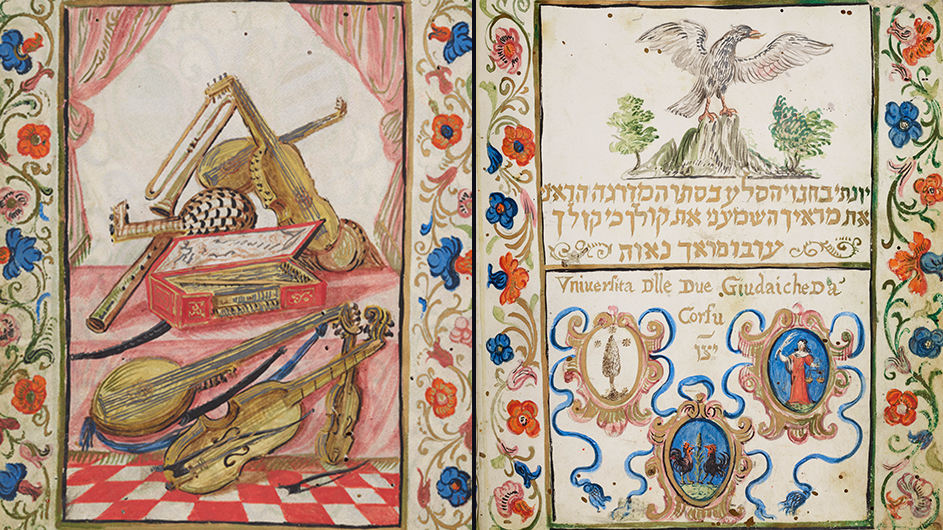 יונתי בחגוי הסלע בסתר המדרגה הראני
את מראיך השמעני את קולך כי קולך
ערב ומראך נאוה
Vniuersita Dlle Due Giudaiche Da
Corfu
יצו